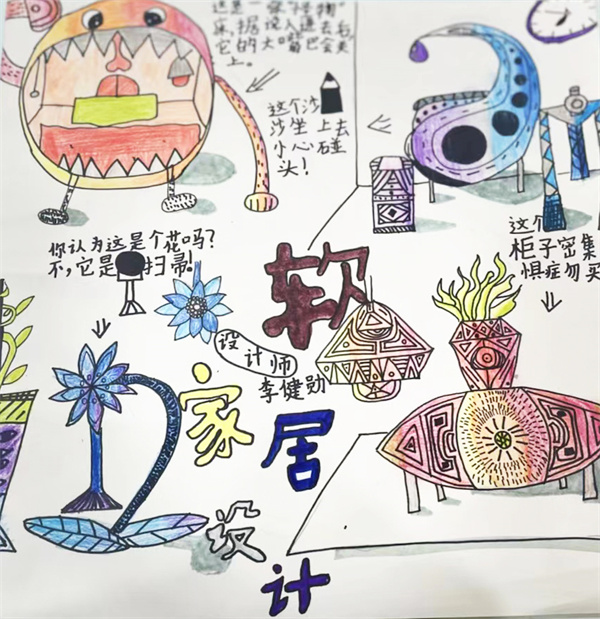 这是一张
床,据说人进去
它的大嘴巴会关
上。
这个沙
沙坐上去
小心碰
头!
你认为这是个花吗?
不,它是扫帚!
这个
柜子密集
惧症勿买
软
家居
设计
设计师
李健勋